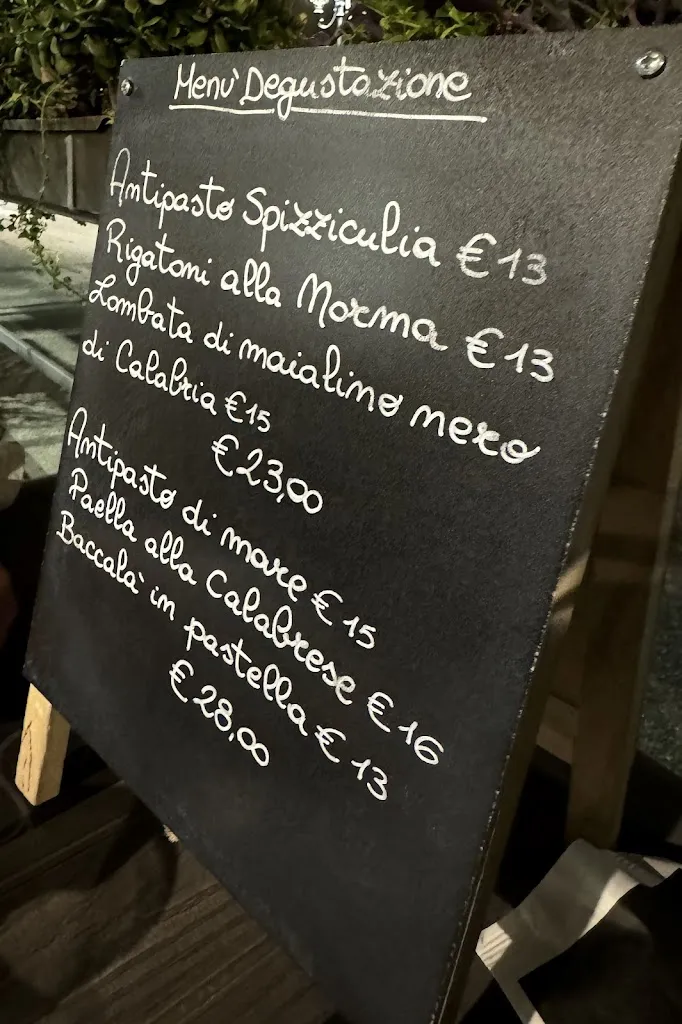 Menù Degustazione
Antipasto Spizziculia €13
Rigatoni alla Norma €13
Lombata di maialino nero
di Calabria €15
€23,00
Antipasto di mare €15
Paella alla Calabrese €16
Baccalà in pastella €13
€28,00